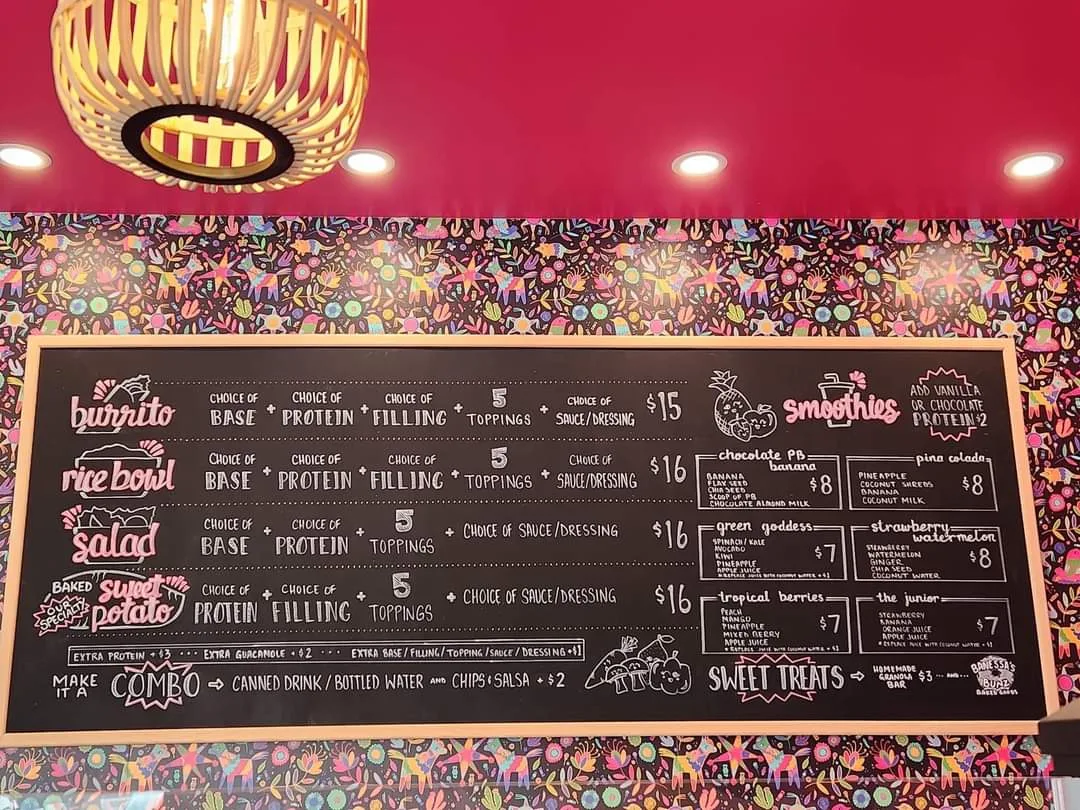 burrito
CHOICE OF BASE + CHOICE OF PROTEIN + CHOICE OF FILLING + 5 TOPPINGS + CHOICE OF SAUCE/DRESSING $15
rice bowl
CHOICE OF BASE + CHOICE OF PROTEIN + CHOICE OF FILLING + 5 TOPPINGS + CHOICE OF SAUCE/DRESSING $16
salad
CHOICE OF BASE + CHOICE OF PROTEIN + 5 TOPPINGS + CHOICE OF SAUCE/DRESSING $16
BAKED sweet potato
OUR SPECIALTY
CHOICE OF PROTEIN + CHOICE OF FILLING + 5 TOPPINGS + CHOICE OF SAUCE/DRESSING $16
EXTRA PROTEIN +$3 ··· EXTRA GUACAMOLE +$2 ··· EXTRA BASE/FILLING/TOPPING/SAUCE/DRESSING +$1
MAKE IT A COMBO → CANNED DRINK/BOTTLED WATER AND CHIPS & SALSA + $2
smoothies
ADD VANILLA
OR CHOCOLATE
PROTEIN $2
chocolate PB
banana
BANANA
FLAX SEED
CHIA SEED
SCOOP OF PB
CHOCOLATE ALMOND MILK
$8
pina colada
PINEAPPLE
COCONUT SHREDS
BANANA
COCONUT MILK
$8
green goddess
SPINACH/KALE
AVOCADO
KIWI
PINEAPPLE
APPLE JUICE
* REPLACE JUICE WITH COCONUT WATER + $1
$7
strawberry
watermelon
STRAWBERRY
WATERMELON
GINGER
CHIA SEED
COCONUT WATER
$8
tropical berries
PEACH
MANGO
PINEAPPLE
MIXED BERRY
APPLE JUICE
* REPLACE JUICE WITH COCONUT WATER + $1
$7
the junior
STRAWBERRY
BANANA
ORANGE JUICE
APPLE JUICE
* REPLACE JUICE WITH COCONUT WATER + $1
$7
SWEET TREATS → HOMEMADE GRANOLA BAR $3 ··· AND ···
BANESSA'S
BUNZ
BAKED GOODS